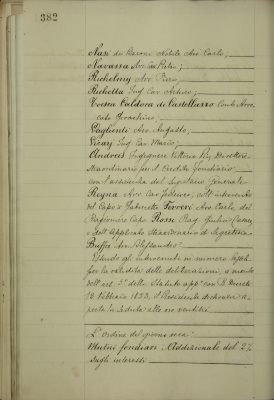 382
Nasi dei Baroni Nobile Avv. Carlo;
Navarra Avv. Cav. Pietro;
Richelmy Avv. Piero;
Richetta Ing. Cav. Arturo;
Toesca Caldora de Castellazzo Conte Avvo-
cato Gioachino;
Vaglienti Avv. Augusto;
Vicary Ing. Cav. Mario;
Andreis Ingegnere Vittorio
Straordinario per il Credito Fondiario
con l'assistenza del Segretario Generale
Reyna Avv. Cav. Federico,
Capo Gabinetto Ferreri Avv. Carlo, del
Ragioniere Capo Rosse Rag. Giulio Cesare
e dell'Applicato Straordinario di Segreteria
Buffa Avv. Alessandro.
Essendo gli intervenuti in numero legale
per la validità delle deliberazioni, a mente
dell'art. 5° dello Statuto app° con R. Decreto
Febbraio 1923, il Presidente dichiara a-
perta la seduta alle ore venti
L'ordine del giorno reca:
Mutui fondiari. Addizionale del 2%
sugli interessi